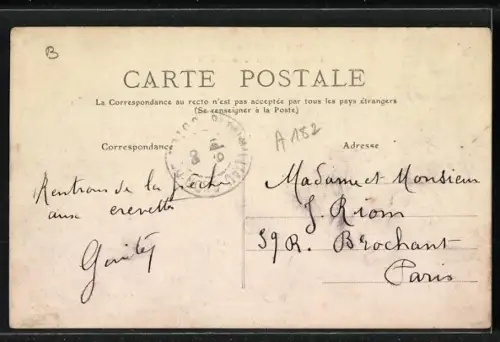 B
CARTE POSTALE
La Correspondance au recto n'est pas acceptée par tous les pays étrangers
(Se renseigner à la Poste)
A 182
Correspondance
Adresse
Rentrons de la pêche
aux crevettes
Madame et Monsieur
J. Riom
59 R. Brochant
Paris